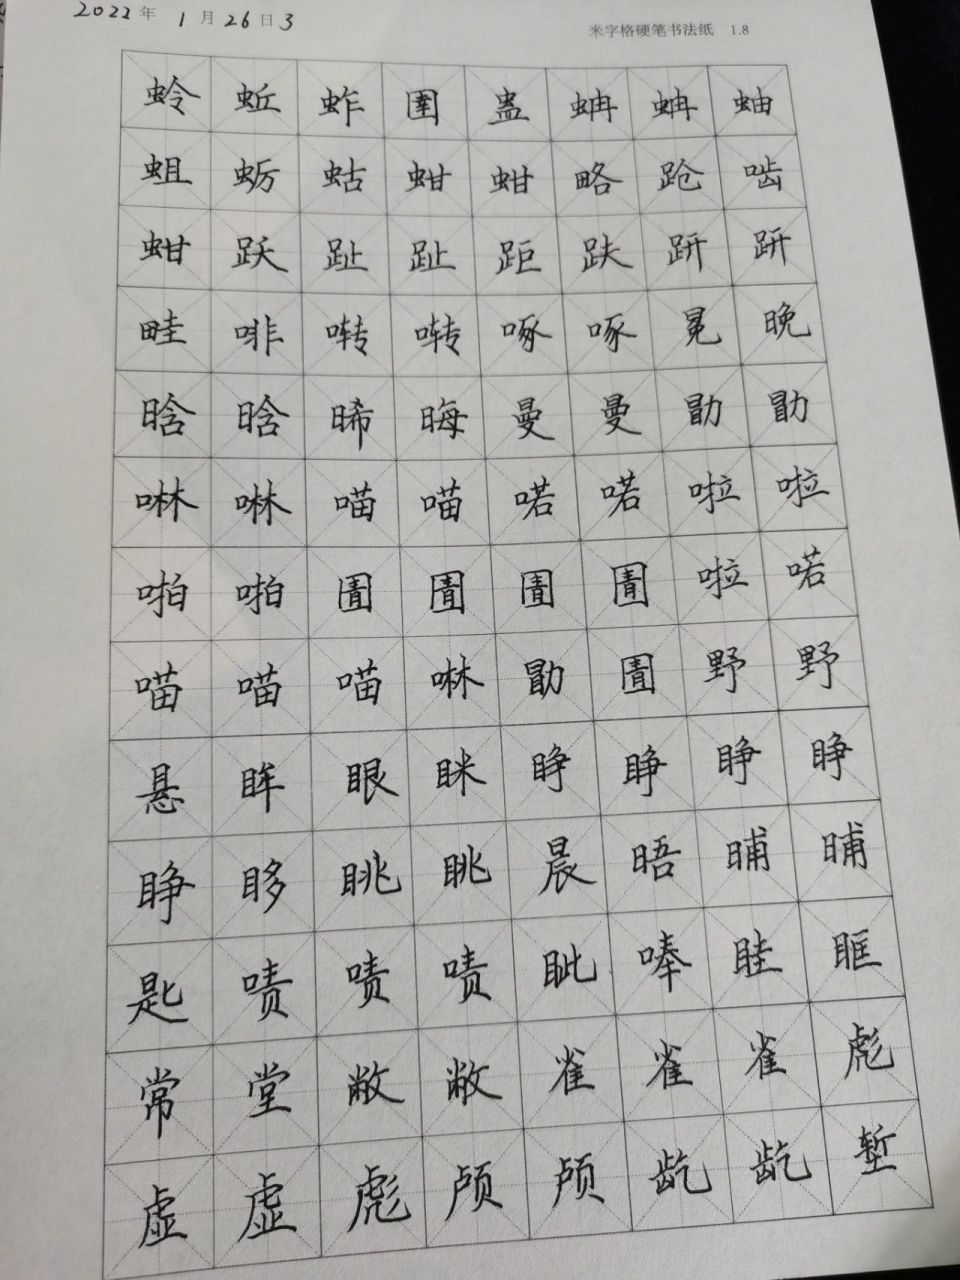 2022年 1月26日3
米字格硬笔书法纸 1.8
蛉 蚯 蚱 圉 蛊 蚺 蚺 蚰
蛆 蛎 蛄 蚶 蚶 略 跄 啮
蚶 跃 趾 趾 距 趺 趼 趼
畦 啡 啭 啭 啄 啄 冕 晚
晗 晗 晞 晦 曼 曼 勖 勖
啉 啉 喵 喵 喏 喏 啦 啦
啪 啪 圊 圊 圊 圊 啦 喏
喵 喵 喵 啉 勖 圊 野 野
悬 眸 眼 眯 睁 睁 睁 睁
睁 眵 眺 眺 晨 晤 晡 晡
匙 啧 啧 啧 眦 唪 眭 眶
常 堂 敝 敝 雀 雀 雀 彪
虚 虚 彪 颅 颅 龁 龁 堑